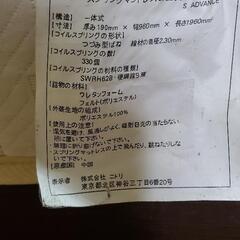 S ADVANCE
【構造】 一体式
【寸法】 厚み190mm × 幅980mm × 長さ1960mm
【コイルスプリングの形状】
つづみ型ばね 線材の直径2.30mm
【コイルスプリングの数】
330個
【コイルスプリングの材料の種類】
SWRH62B・硬鋼線S種
【詰物の材料】
ウレタンフォーム
フェルト(ポリエステル)
【外装生地の組成】
ポリエステル100%
【使用上の注意】
無理に折り曲げないでください。
【原産国】 中国
表示者 株式会社 ニトリ
東京都北区神谷三丁目6番20号